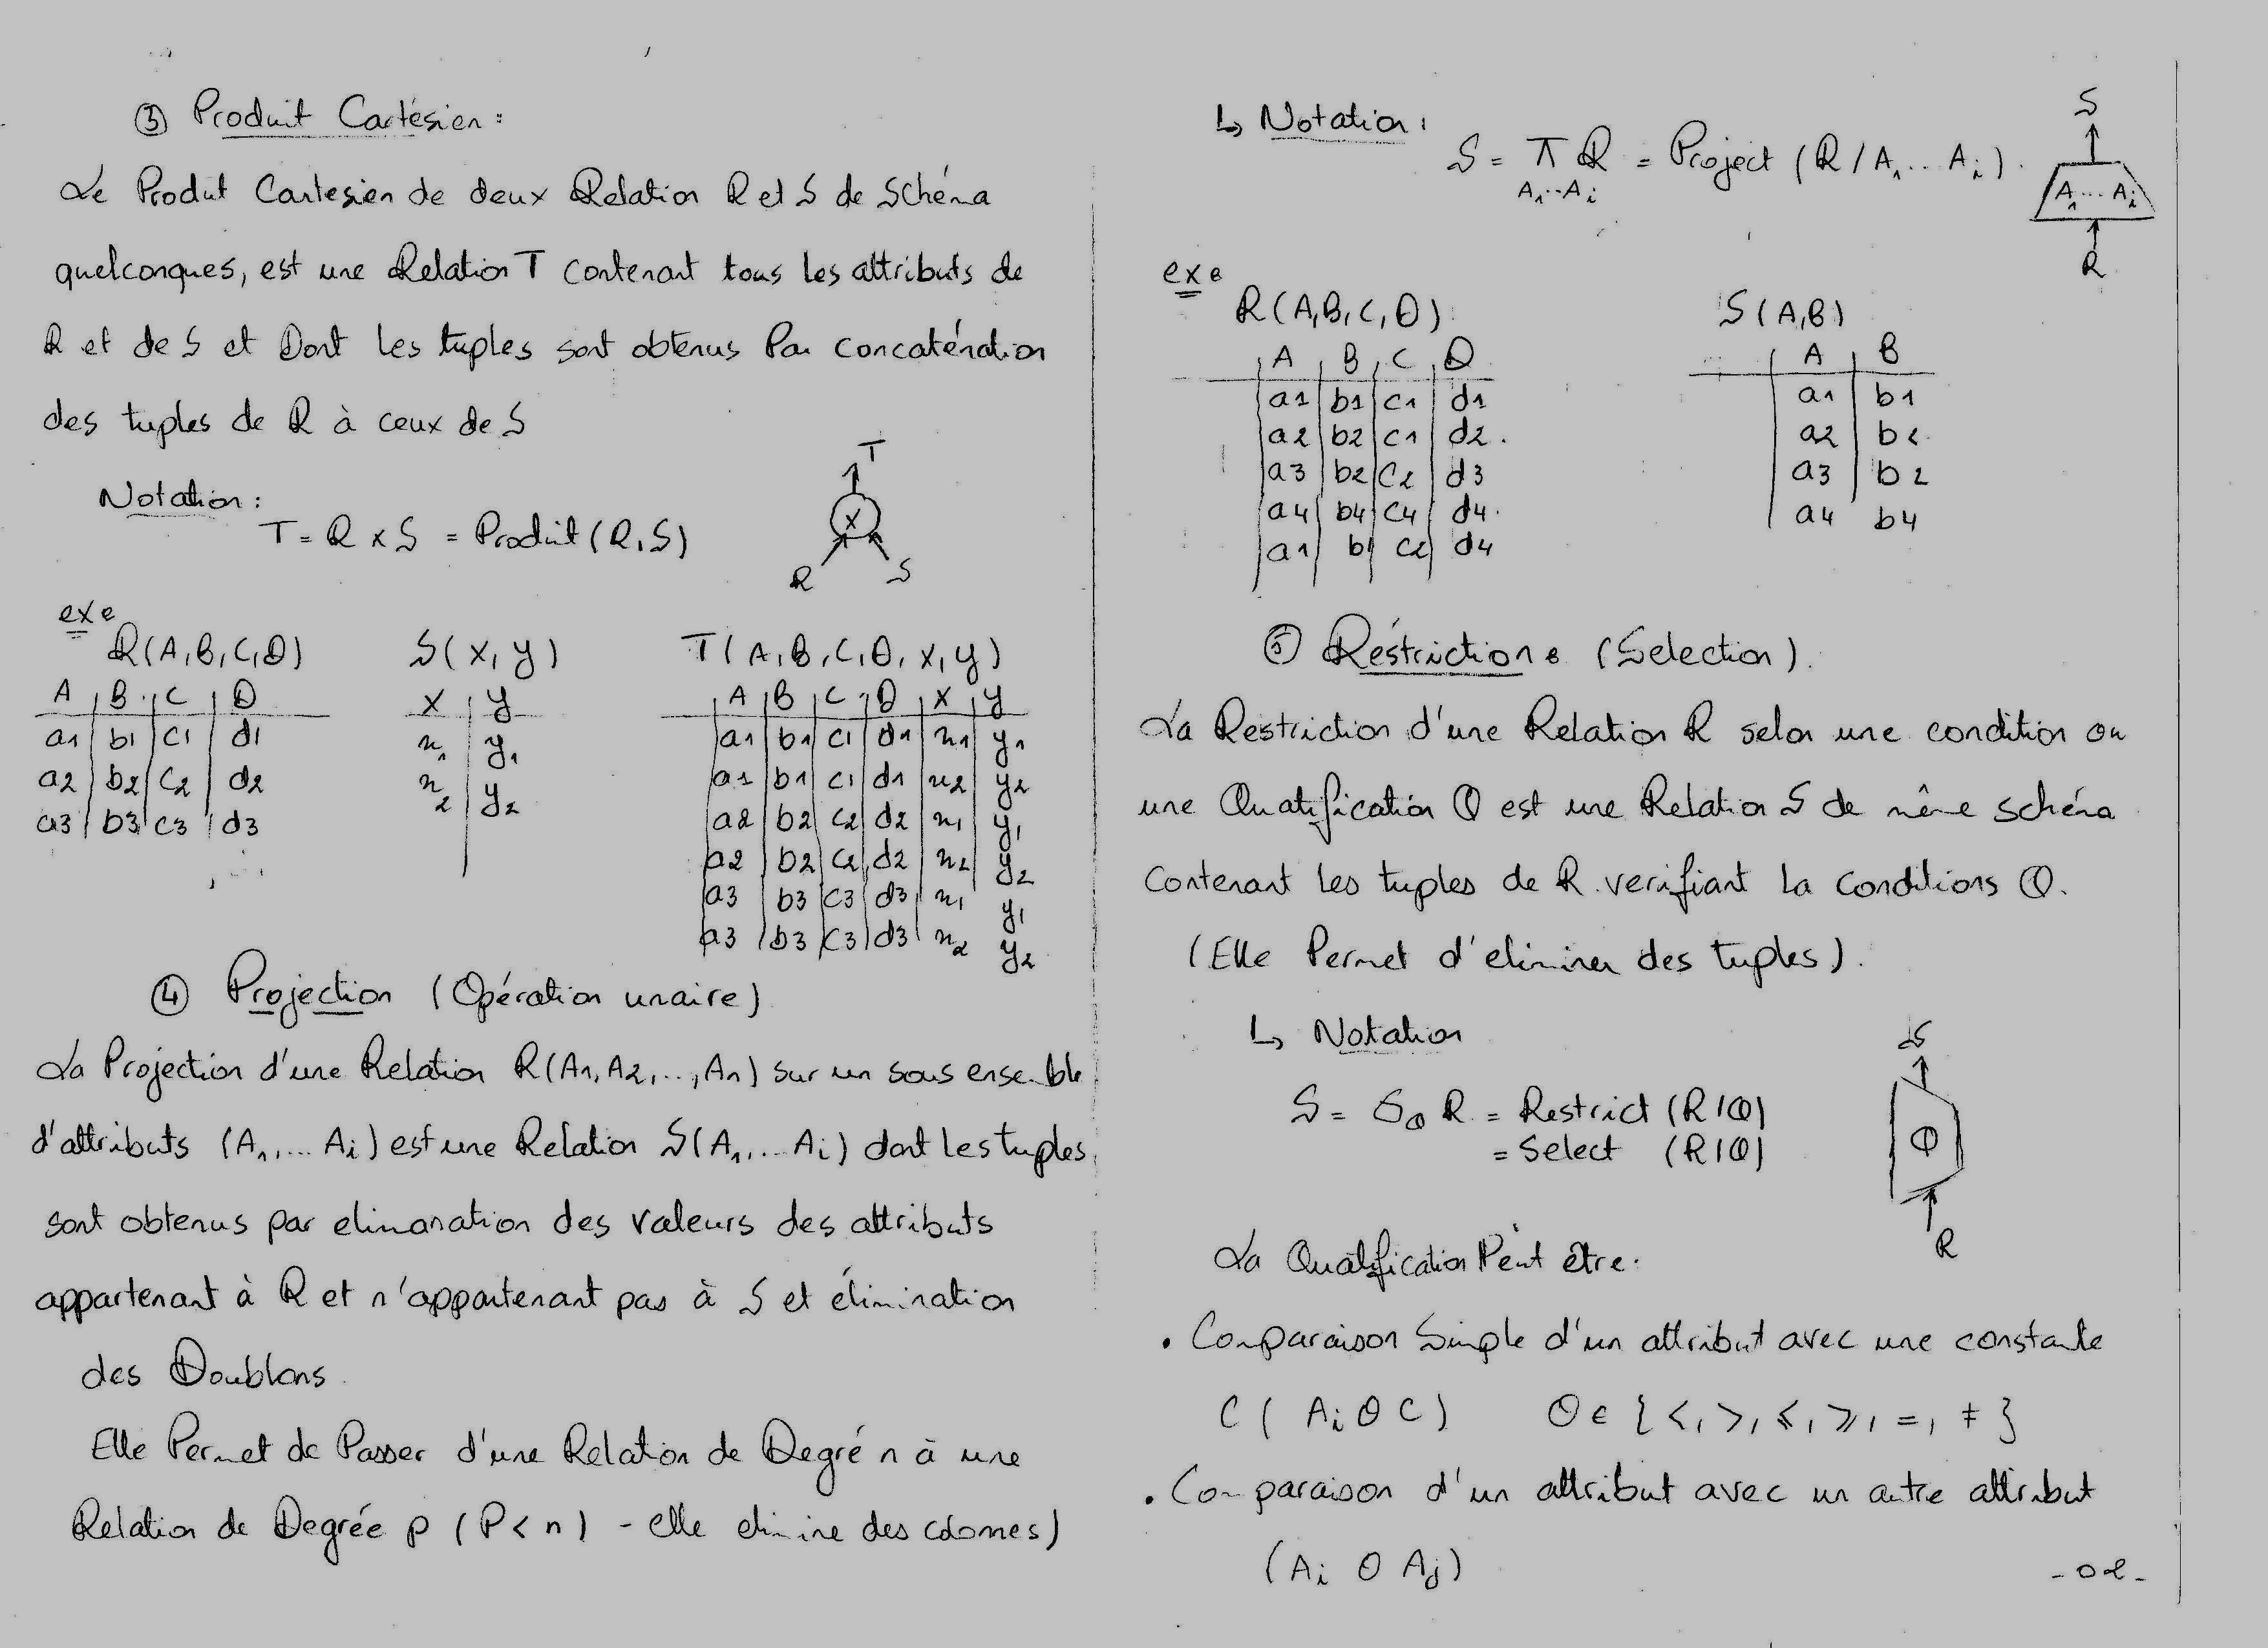 ③ Produit Cartésien :
Le Produit Cartesien de deux Relation R et S de Schéma
quelconques, est une Relation T contenant tous les attributs de
R et de S et Dont les tuples sont obtenus Par concaténation
des tuples de R à ceux de S
Notation :
T = R x S = Produit (R, S)
T
X
R S
exe
R(A, B, C, D)
A B C D
a1 b1 c1 d1
a2 b2 c2 d2
a3 b3 c3 d3
S(x, y)
x y
x1 y1
x2 y2
T(A, B, C, D, x, y)
A B C D x y
a1 b1 c1 d1 x1 y1
a1 b1 c1 d1 x2 y2
a2 b2 c2 d2 x1 y1
a2 b2 c2 d2 x2 y2
a3 b3 c3 d3 x1 y1
a3 b3 c3 d3 x2 y2
④ Projection (Opération unaire)
La Projection d'une Relation R(A1, A2, .., An) sur un sous ensemble
d'attributs (A1, ... Ai) est une Relation S(A1, ... Ai) dont les tuples
sont obtenus par elimanation des valeurs des attributs
appartenant à R et n'appartenant pas à S et élimination
des Doublons.
Elle Permet de Passer d'une Relation de Degré n à une
Relation de Degrée p (P < n) - elle elimine des colomes)
↳ Notation :
S = π R = Project (R / A1 ... Ai).
A1 .. Ai
S
A1 ... Ai
R
exe
R(A, B, C, D)
A B C D
a1 b1 c1 d1
a2 b2 c1 d2
a3 b2 c2 d3
a4 b4 c4 d4
a1 b1 c2 d4
S(A, B)
A B
a1 b1
a2 b2
a3 b2
a4 b4
⑤ Restriction : (Selection).
La Restriction d'une Relation R selon une condition ou
une Qualification Q est une Relation S de même schéma
contenant les tuples de R verifiant la conditions Q.
(Elle Permet d'eliminer des tuples).
↳ Notation
S = σQ R = Restrict (R / Q)
= Select (R / Q)
S
Q
R
La Qualification Peut être :
• Comparaison Simple d'un attribut avec une constante
C ( Ai θ C ) θ ∈ { <, >, ≤, ≥, =, ≠ }
• Comparaison d'un attribut avec un autre attribut
(Ai θ Aj)
- 02 -